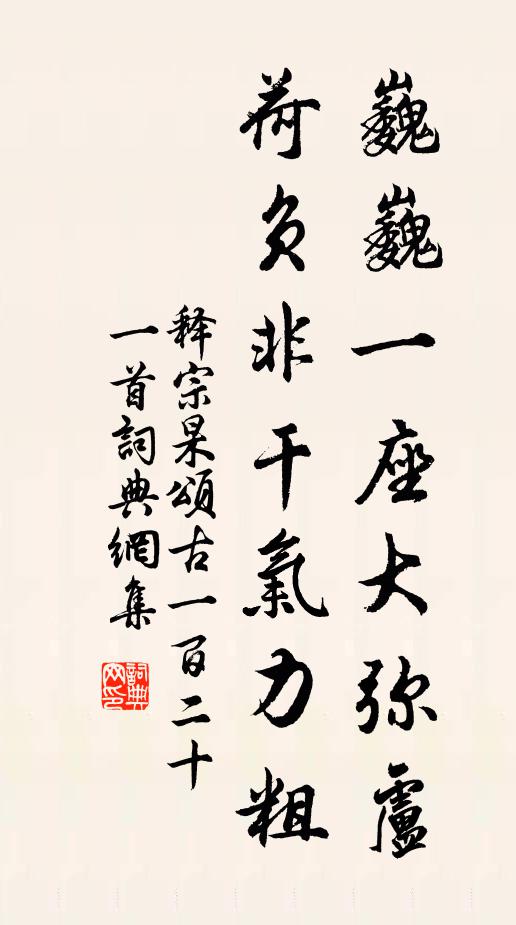 巍巍一座大弥盧
荷负非干氣力粗
释宗杲頌古一百二十
一首詞典網集
詞典網印